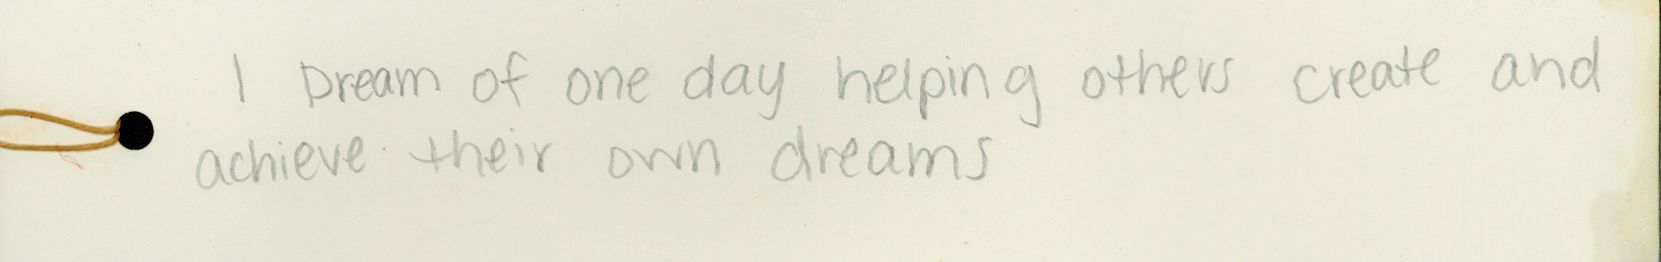 I Dream of one day helping others create and
achieve their own dreams